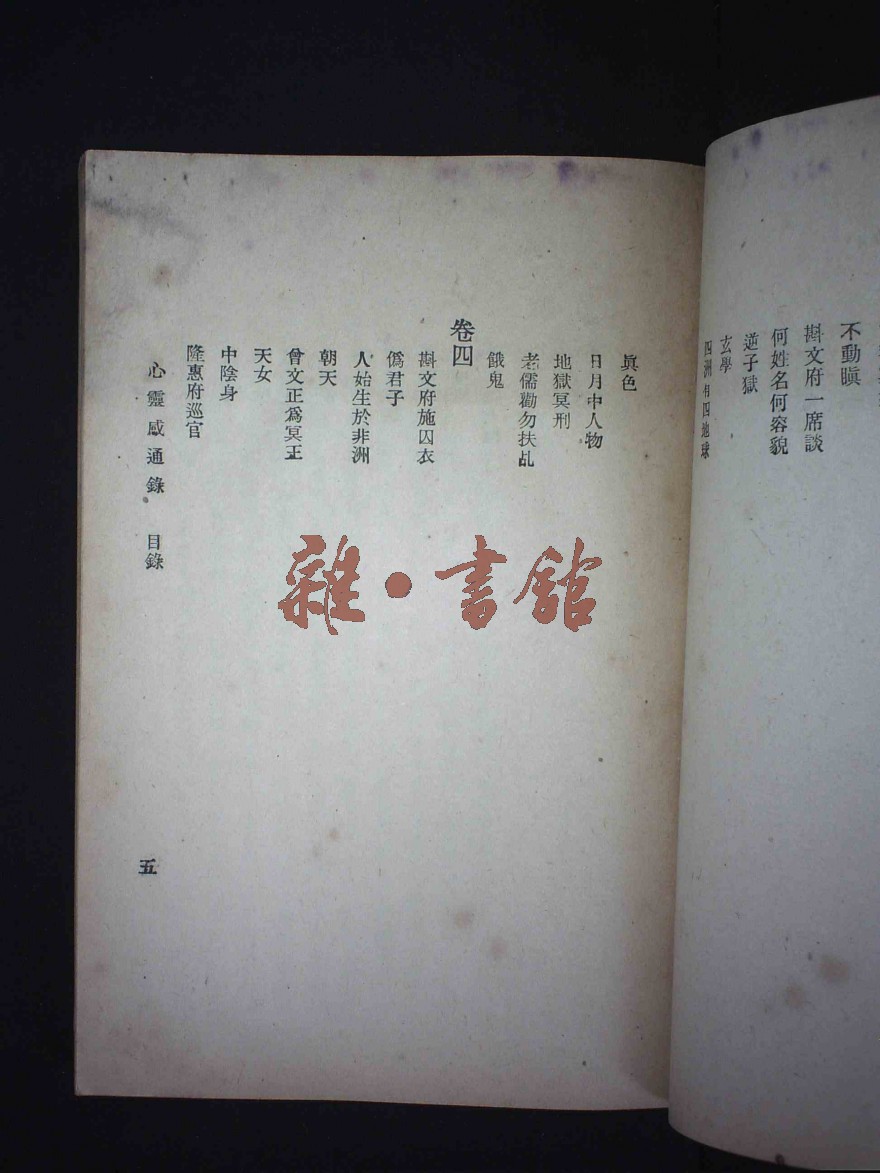 不動瞋
斟文府一席談
何姓名何容貌
逆子獄
玄學
四洲有四地球
眞色
日月中人物
地獄冥刑
老儒勸勿扶乩
餓鬼
卷四
斟文府施囚衣
僞君子
人始生於非洲
朝天
曾文正爲冥王
天女
中陰身
隆惠府巡官
心靈感通錄 目錄
五
雜·書館